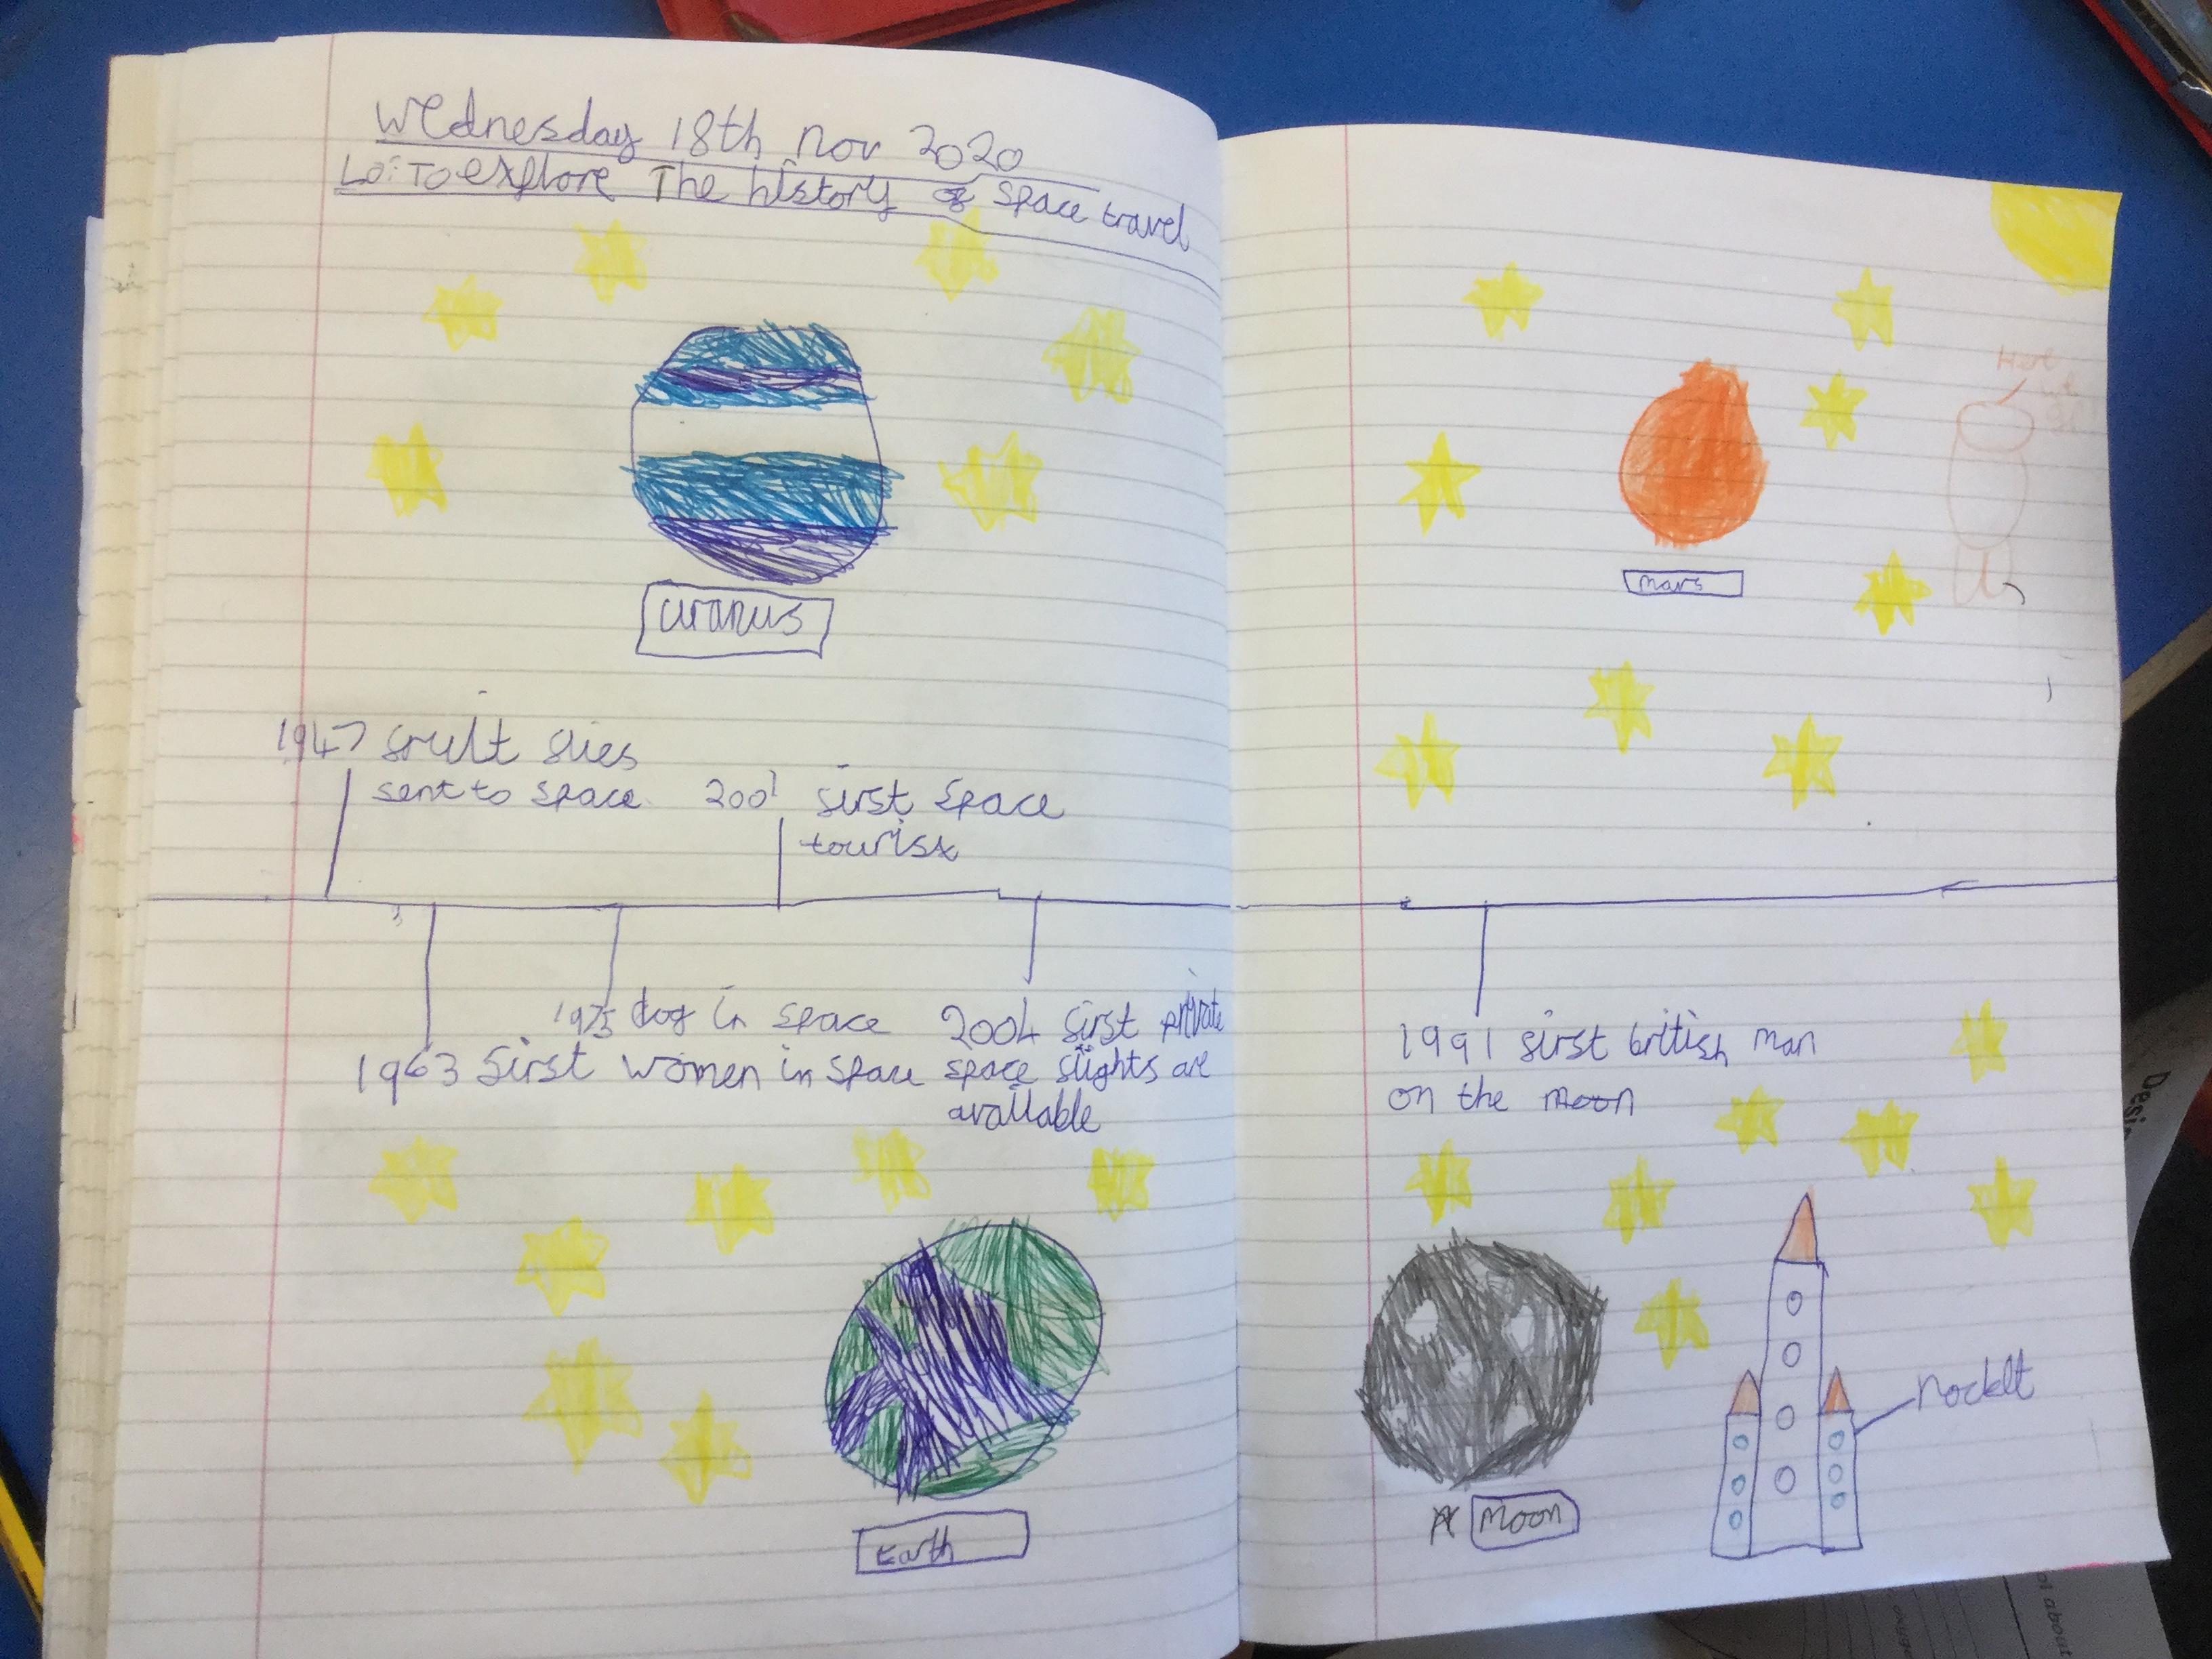 Wednesday 18th Nov 2020
Lo: To explore The history of space travel
uranus
mars
1947 fruit flies
sent to space
2001 first space
tourist
1975 dog in space
1963 first women in space
2004 first private
space flights are
available
1991 first british man
on the moon
Earth
Moon
rocket
Hot